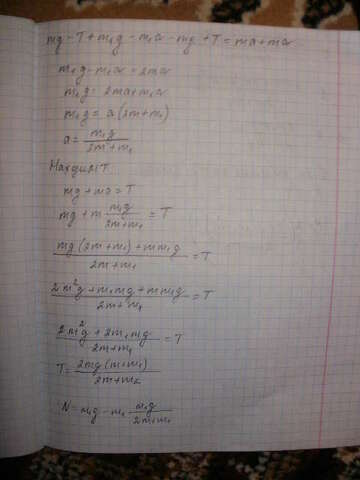 mg - T + m₁g - m₁a - mg + T = ma + ma
m₁g - m₁a = 2ma
m₁g = 2ma + m₁a
m₁g = a(2m + m₁)
a = m₁g / (2m + m₁)
Найдем T
mg + ma = T
mg + m m₁g / (2m + m₁) = T
(mg(2m + m₁) + mm₁g) / (2m + m₁) = T
(2m²g + m₁mg + mm₁g) / (2m + m₁) = T
(2m²g + 2m₁mg) / (2m + m₁) = T
T = 2mg(m + m₁) / (2m + m₁)
N = m₁g - m₁ m₁g / (2m + m₁)